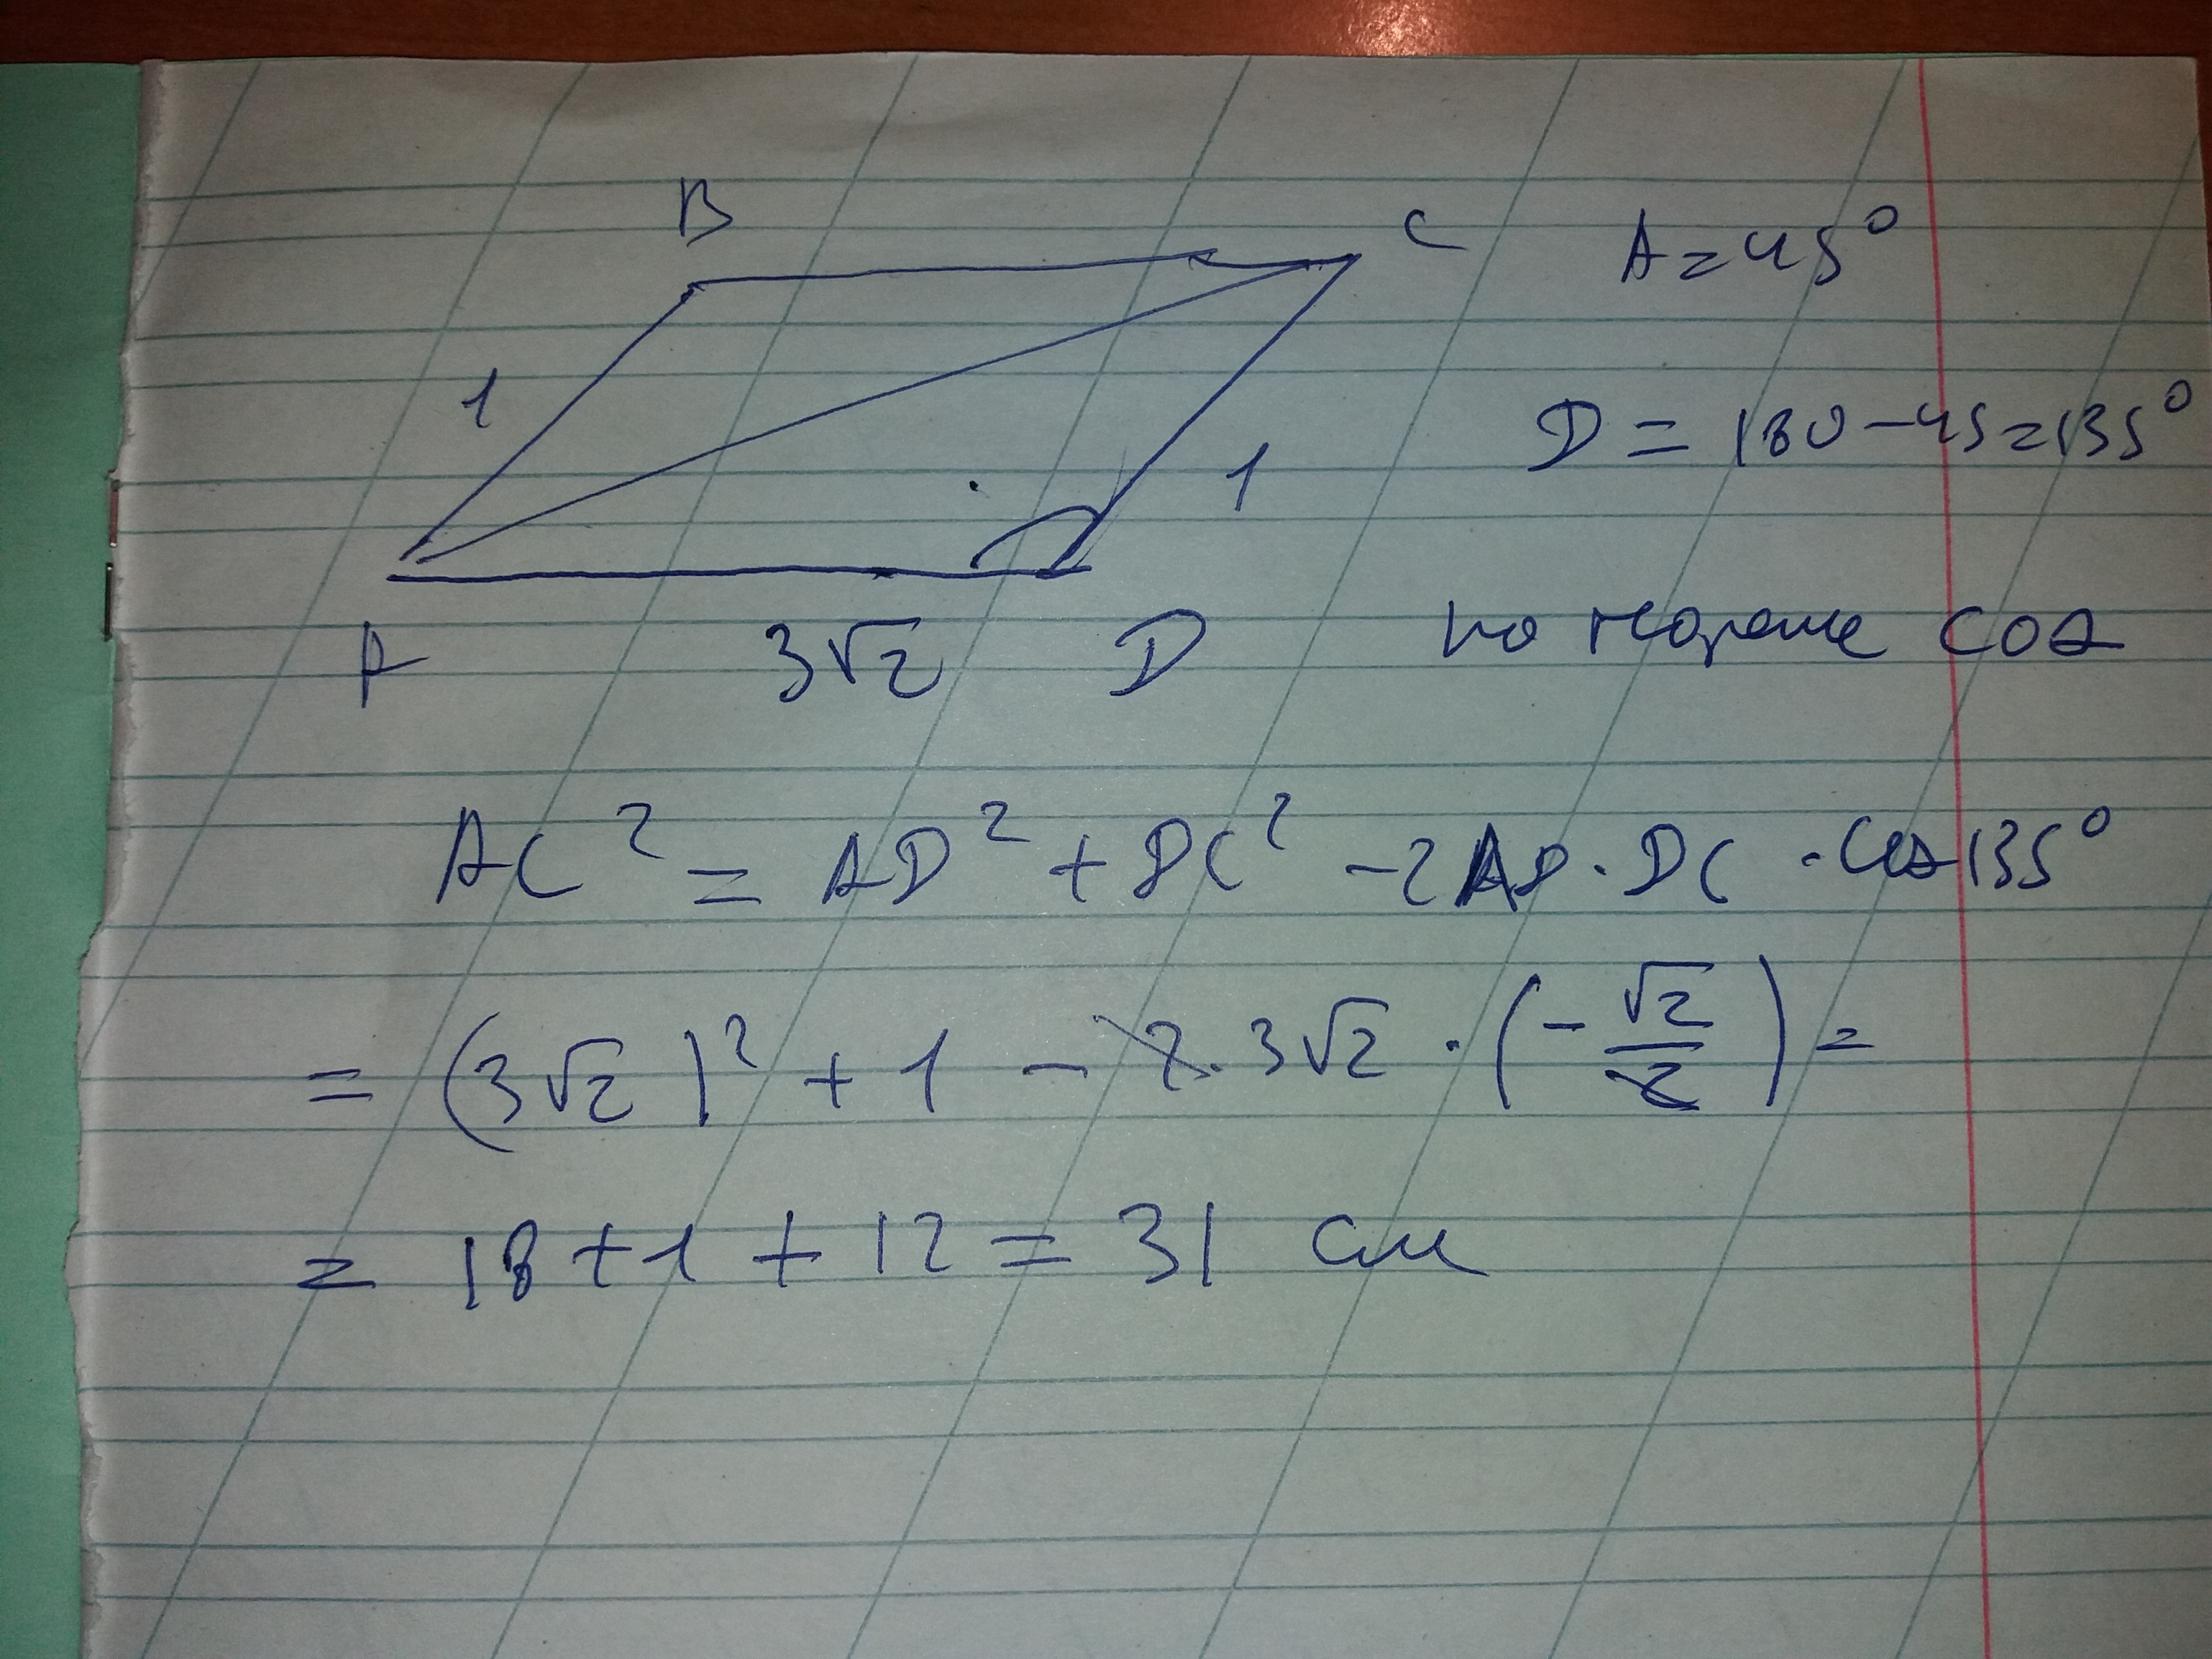 B
C
A = 45°
1
D = 180 - 45 = 135°
1
A
3√2
D
по теореме cos
AC² = AD² + DC² - 2AD · DC · cos 135°
= (3√2)² + 1 - 2 · 3√2 · (-√2/2) =
= 18 + 1 + 12 = 31 см